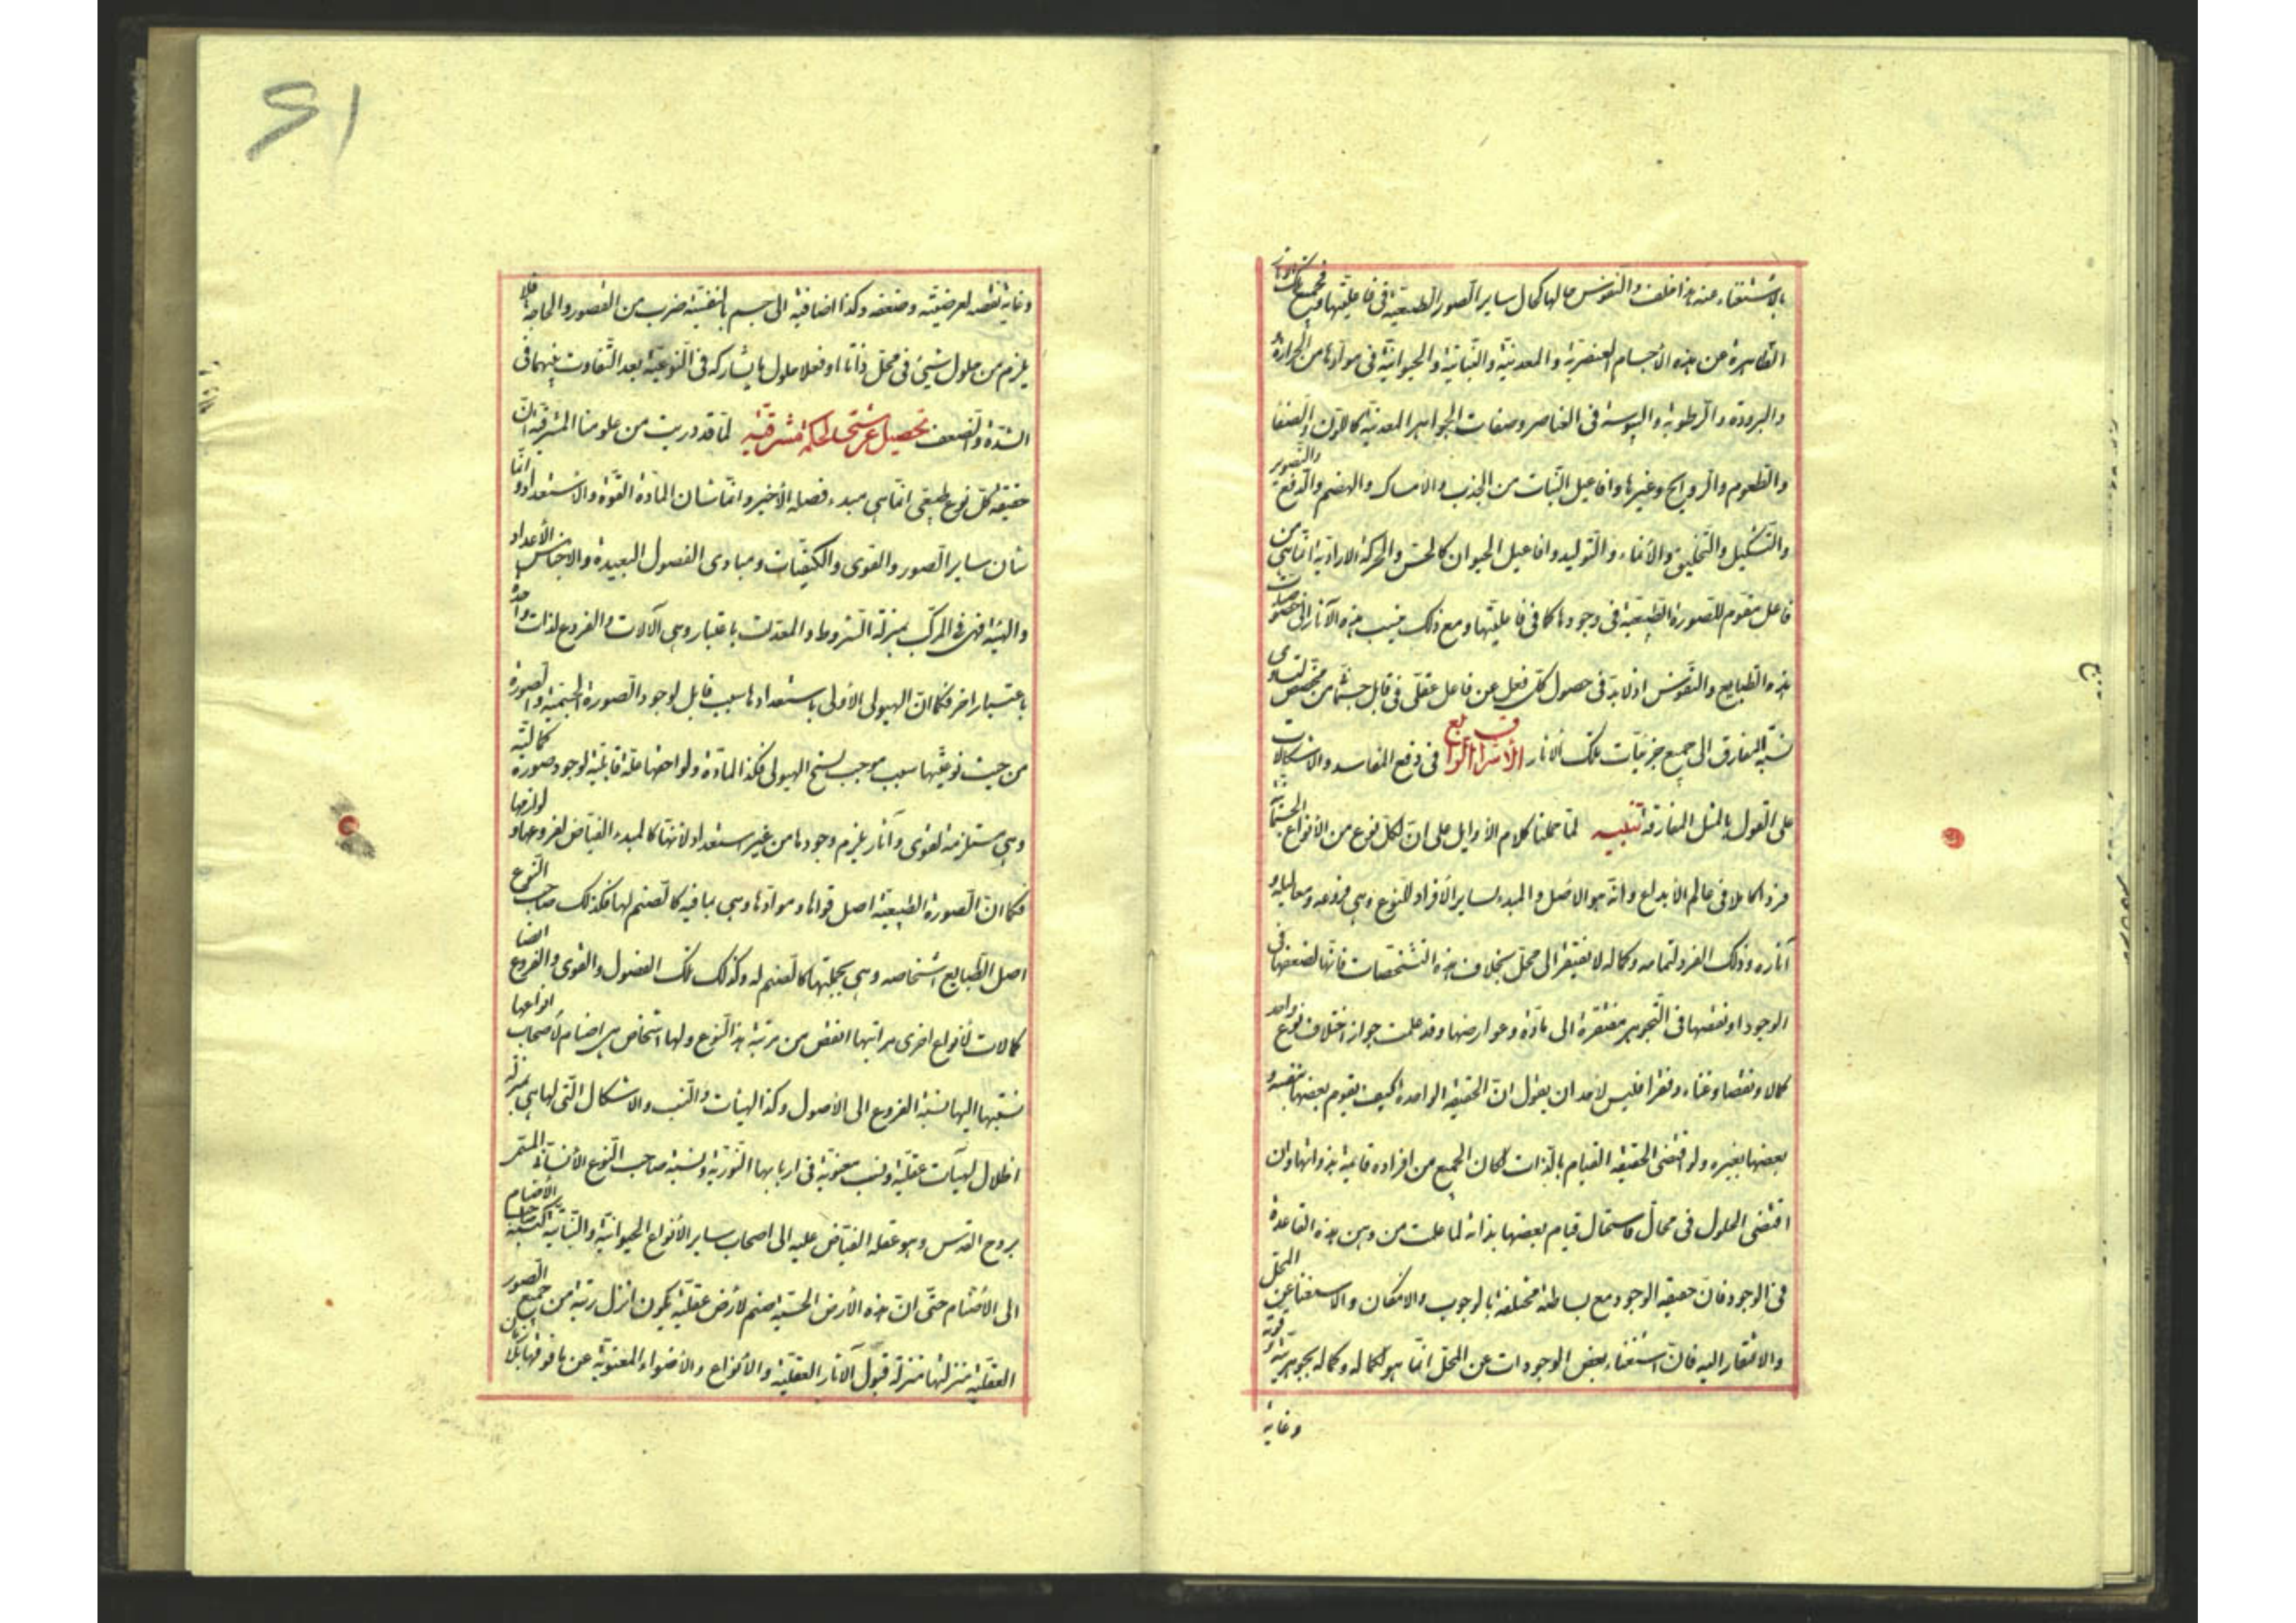 بالاستغناء عنه هذا خلف والنفوس حالها كحال ساير الصور الطبيعية فى فاعليتها فجميع تلك الآثار
الظاهرة عن هذه الأجسام العنصرية والمعدنية والنباتية والحيوانية فى موادها من الحرارة
والبرودة والرطوبة واليبوسة فى العناصر وصفات الجواهر المعدنية كاللون والصفا
والطعوم والروايح وغيرها وافاعيل النبات من الجذب والامساك والهضم والدفع والتصوير
والتشكيل والتخليق والانماء والتوليد وافاعيل الحيوان كالحس والحركة الارادية انما هى من
فاعل مقوم للصورة الطبيعية فى وجودها كما فى فاعليتها ومع ذلك ينسب هذه الآثار الى خصوصيات
هذه الطبايع والنفوس اذ لا بد فى حصول كل فعل عن فاعل عقلى فى قابل جسمانى من مخصص لتساوى
نسبة المفارق الى جميع جزئيات تلك الآثار الاشراق الرابع فى دفع المفاسد والاشكالات
على القول بالمثل المفارقة تنبيه لما حملنا كلام الأوايل على ان لكل نوع من الأنواع الجسمانية
فردا كاملا فى عالم الابداع وانه هو الاصل والمبدء لساير الأفراد للنوع وهى فروعه ومعاليله و
آثاره وذلك الفرد لتمامه وكماله لا يفتقر الى محل بخلاف هذه التشخصات فانها لضعفها فى
الوجود او نقصها فى التجوهر مفتقرة الى مادة وعوارضها وقد علمت جواز اختلاف نوع واحد
كمالا ونقصا وغناء وفقرا فليس لاحد ان يقول ان الحقيقة الواحدة كيف يقوم بعضها بنفسه و
بعضها بغيره ولو اقتضى الحقيقة القيام بالذات لكان الجميع من افراده قايمة بذواتها وان
اقتضى الحلول فى محال فاستحال قيام بعضها بذاته لما علمت من وهن هذه القاعدة
فى الوجود فان حقيقة الوجود مع بساطته مختلفة بالوجوب والامكان والاستغناء عن المحل
والافتقار اليه فان استغناء بعض الوجودات عن المحل انما هو لكماله وكماله بجوهريته وقوته
وغاية
۶۱
وغاية نقصه لعرضيته وضعفه وكذا اضافيه الى جسم بانفسية ضرب من القصور والحاجة فلا
يلزم من حلول شيئ فى محل ذاتا او فعلا حلول ما يشاركه فى النوعية بعد التفاوت بينهما فى
الشدة والضعف تحصيل عرشى لحكمة مشرقية لما قد دريت من علومنا المشرقية ان
حقيقة كل نوع طبيعى انما هى مبدء فصله الأخير وانما شان المادة القوة والاستعداد وانما
شان ساير الصور والقوى والكيفيات ومبادى الفصول البعيدة والاجناس الأعداد
والهيئة فهى فى المركب بمنزلة الشروط والمعدات باعتبار وهى آلالات والفروع لذات واحدة
باعتبار اخر فكما ان الهيولى الأولى باستعدادها سبب قابل لوجود الصورة الجسمية والصورة
من حيث نوعيتها سبب موجب لسنخ الهيولى فكذا المادة ولواحقها علة قابلية لوجود صورة كمالية
وهى مستلزمة لقوى وآثار يلزم وجودها من غير استعداد لانها كالمبدء الفياض لفروعها و لوازمها
فكما ان الصورة الطبيعية اصل قواها وموادها وهى بما فيه كالصنم لها فكذلك صاحب النوع
اصل الطبايع اشخاصه وهى بجملتها كالصنم له وكذلك تلك الفصول والقوى والفروع ايضا
كمالات لأنواع اخرى مراتبها انقص من مرتبة هذا النوع ولها اشخاص هى اصنام لأصحاب انواعها
نسبتها اليها نسبة الفروع الى الأصول وكذا الهيئات والنسب والاشكال التى لها هى بمنزلة
اظلال لهيآت عقلية ونسب معنوية فى اربابها النورية ونسبة صاحب النوع الأنسانى المسمى
بروح القدس وهو عقله الفياض عليه الى اصحاب ساير الأنواع الحيوانية والنباتية كنسبة الأصنام
الى الأصنام حتى ان هذه الأرض الحسية صنم لأرض عقلية يكون انزل رتبة من جميع الصور
العقلية منزلتها منزلة قبول الآثار العقلية والأنواع والأضواء المعنوية عن ما فوقها